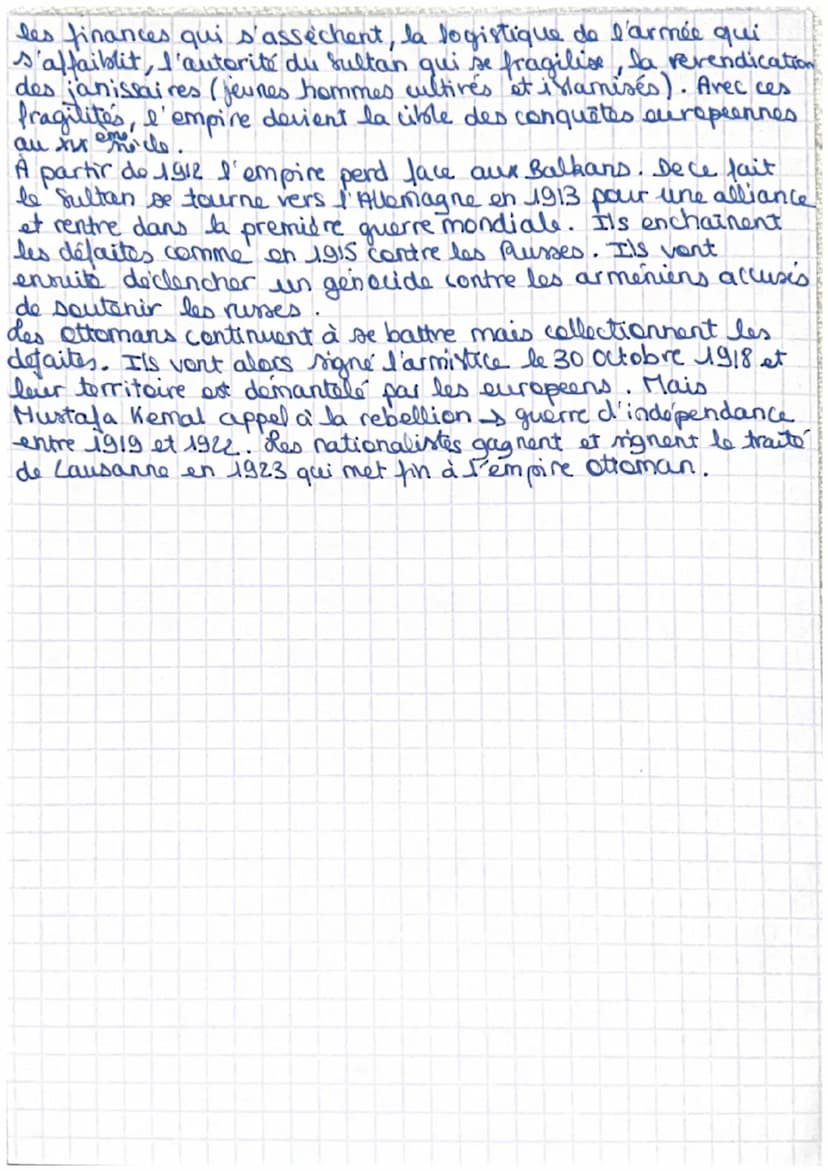 les finances qui s'assèchent, la logistique de l'armée qui
s'affaiblit, l'autorité du Sultan qui se fragilise, la revendication
des janissaires (jeunes hommes cultivés et islamisés). Avec ces
fragilités, l'empire devient la cible des conquêtes europeennes
au XIX ème siècle.
À partir de 1912 l'empire perd face aux Balkans. De ce fait
le Sultan se tourne vers l'Allemagne en 1913 pour une alliance
et rentre dans la première guerre mondiale. Ils enchaînent
les défaites comme en 1915 contre les Russes. Ils vont
ensuite déclencher un génocide contre les arméniens accusés
de soutenir les russes.
Les ottomans continuent à se battre mais collectionnent les
défaites. Ils vont alors signé l'armistice le 30 octobre 1918 et
leur territoire est démantelé par les europeens. Mais
Mustafa Kemal appel à la rebellion → guerre d'indépendance
entre 1919 et 1922. Les nationalistes gagnent et signent le traité
de Lausanne en 1923 qui met fin à l'empire ottoman.